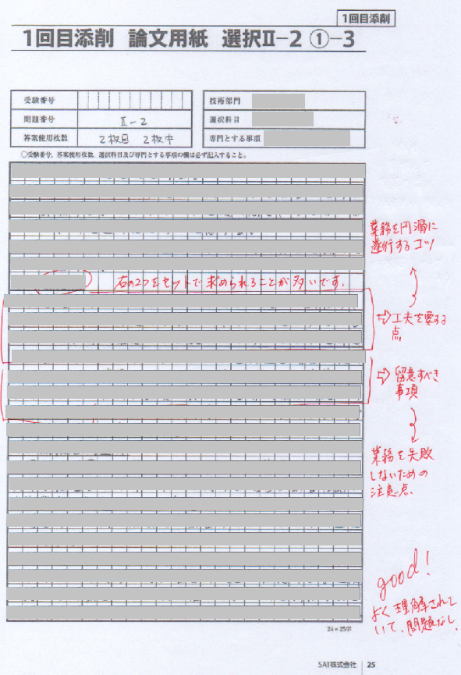 1回目添削
1回目添削 論文用紙 選択Ⅱ-2 ①-3
受験番号
問題番号 Ⅱ-2
答案使用枚数 2枚目 2枚中
技術部門
選択科目
専門とする事項
○受験番号、答案使用枚数、選択科目及び専門とする事項の欄は必ず記入すること。
業務を円滑に
遂行するコツ
右の2つをセットで求められることが多いです。
⇨工夫を要する
点
⇨留意すべき
事項
業務を失敗
しないための
注意点.
good!
よく理解されて
いて、問題なし.
24×25行
SAI株式会社 25